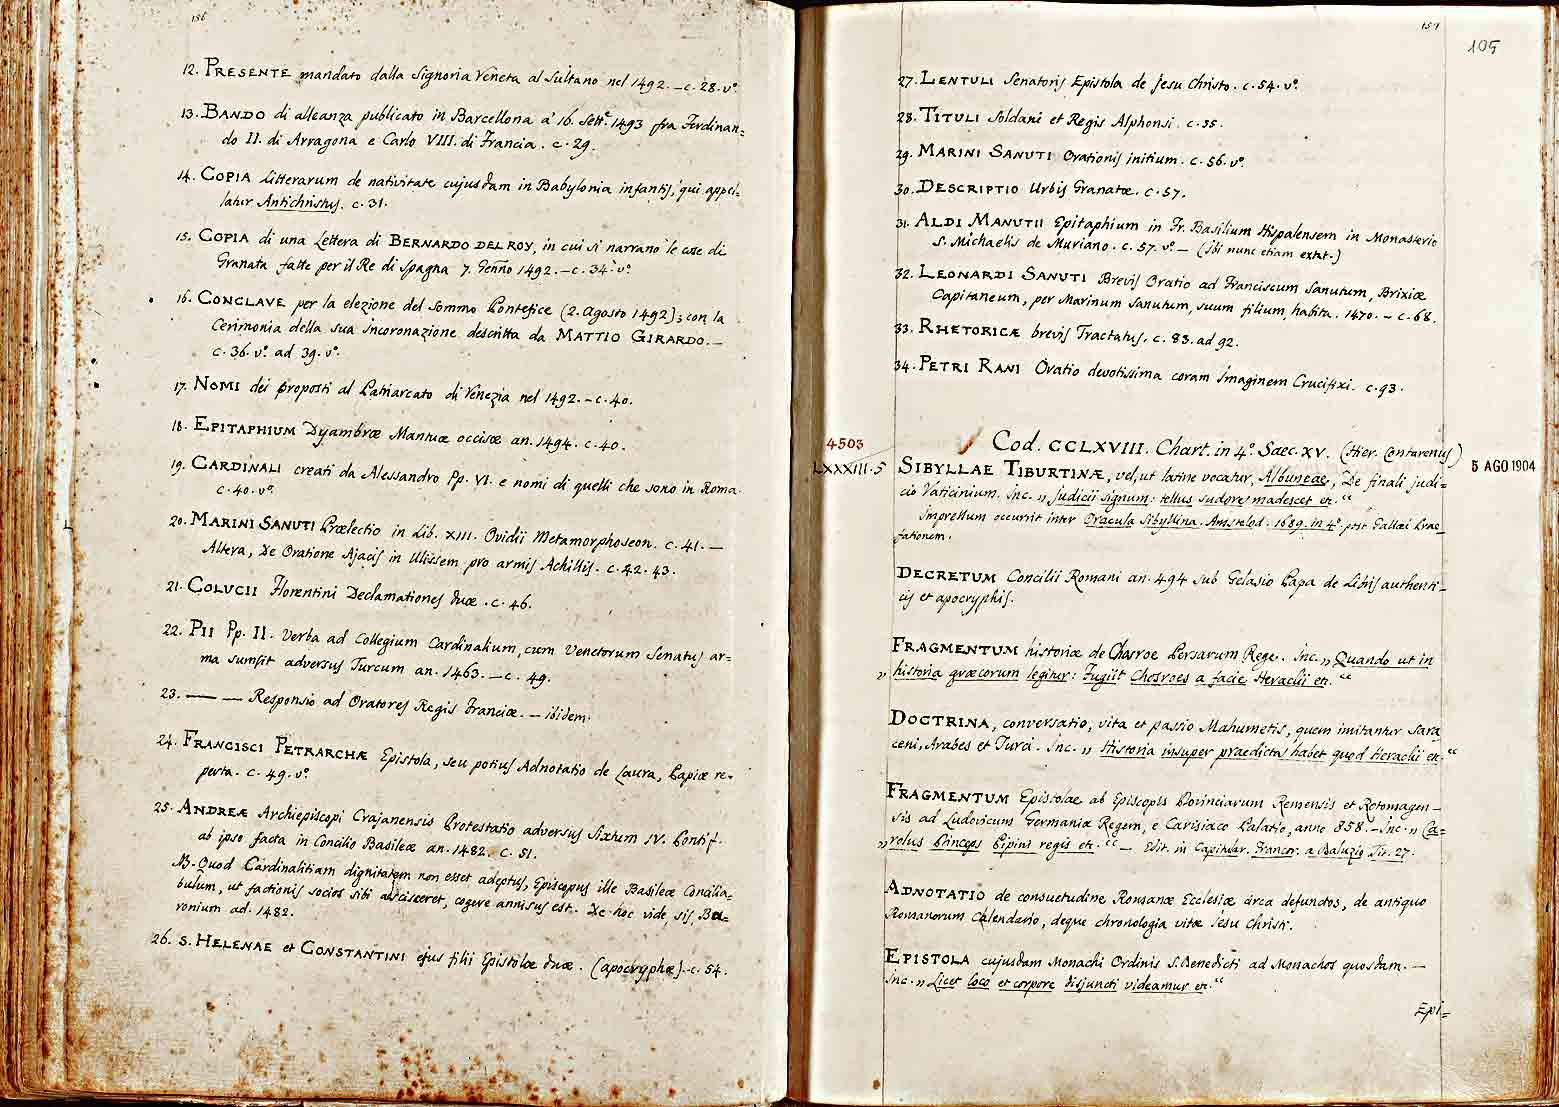 156
12. PRESENTE mandato dalla Signoria Veneta al Sultano nel 1492. – c. 28. vº
13. BANDO di alleanza publicato in Barcellona a' 16. Sett.e 1493 fra Ferdinan=
do II. di Arragona e Carlo VIII. di Francia. c. 29.
14. COPIA Litterarum de nativitate cujusdam in Babylonia infantis, qui appel=
latur Antichristus. c. 31.
15. COPIA di una Lettera di BERNARDO DEL ROY, in cui si narrano le cose di
Granata fatte per il Re di Spagna 7. Genno 1492. – c. 34. vº
16. CONCLAVE per la elezione del Sommo Pontefice (2. Agosto 1492); con la
Cerimonia della sua incoronazione descritta da MATTIO GIRARDO. –
c. 36. vº ad 39. vº.
17. NOMI dei proposti al Patriarcato di Venezia nel 1492. – c. 40.
18. EPITAPHIUM Dyambræ Mantuæ occisæ an. 1494. c. 40.
19. CARDINALI creati da Alessandro Pp. VI. e nomi di quelli che sono in Roma.
c. 40. vº
20. MARINI SANUTI Prælectio in Lib. XIII. Ovidii Metamorphoseon. c. 41. –
Altera, De Oratione Ajacis in Ulissem pro armis Achillis. c. 42. 43.
21. COLUCII Florentini Declamationes duæ. c. 46.
22. PII Pp. II. Verba ad Collegium Cardinalium, cum Venetorum Senatus ar=
ma sumsit adversus Turcum an. 1463. – c. 49.
23. —— — Responsio ad Oratores Regis Franciæ. – ibidem.
24. FRANCISCI PETRARCHÆ Epistola, seu potius Adnotatio de Laura, Papiæ re=
perta. c. 49. vº
25. ANDREÆ Archiepiscopi Crajanensis Protestatio adversus Sixtum IV. Pontif.
ab ipso facta in Concilio Basileæ an. 1482. c. 51.
NB. Quod Cardinalitiam dignitatem non esset adeptus, Episcopus ille Basileæ Concilia=
bulum, ut factionis socios sibi adscisceret, cogere annisus est. De hoc vide, sis, Ba=
ronium ad. 1482.
26. S. HELENAE et CONSTANTINI ejus filii Epistolæ duæ. (apocryphæ). – c. 54.
157
105
27. LENTULI Senatoris Epistola de Jesu Christo. c. 54. vº.
28. TITULI Soldani et Regis Alphonsi. c. 55.
29. MARINI SANUTI Orationis initium. c. 56. vº.
30. DESCRIPTIO Urbis Granatæ. c. 57.
31. ALDI MANUTII Epitaphium in Fr. Basilium Hispalensem in Monasterio
S. Michaelis de Muriano. c. 57. vº – (ibi nunc etiam extat.)
32. LEONARDI SANUTI Brevis Oratio ad Franciscum Sanutum, Brixiæ
Capitaneum, per Marinum Sanutum, suum filium, habita. 1470. – c. 68.
33. RHETORICÆ brevis Tractatus. c. 83. ad 92.
34. PETRI RANI Oratio devotissima coram Imaginem Crucifixi. c. 93.
4503
Cod. CCLXVIII. Chart. in 4º. Saec. XV. (Hier. Contarenius)
LXXXIII. 5
5 AGO 1904
SIBYLLAE TIBURTINÆ, vel, ut latine vocatur, Albuneae, De finali judi=
cio Vaticinium. Inc. „ Judicii signum: tellus sudore madescet etc. “
Impressum occurrit inter Oracula Sibyllina. Amstelod. 1689. in 4º. post Gallæi Præ=
fationem.
DECRETUM Concilii Romani an. 494 sub Gelasio Papa de Libris authenti=
cis et apocryphis.
FRAGMENTUM historiæ de Chosroe Persarum Rege. Inc. „ Quando ut in
„ historia græcorum legitur: Fugiit Chosroes a facie Heraclii etc. “
DOCTRINA, conversatio, vita et passio Mahumetis, quem imitantur Sara
ceni, Arabes et Turci. Inc. „ Historia insuper praedicta habet quod Heraclii etc. “
FRAGMENTUM Epistolae ab Episcopis Provinciarum Remensis et Rotomagen=
sis ad Ludovicum Germaniæ Regem, e Carisiaco Palatio, anno 858. – Inc. „ Ca=
„ rolus Princeps Pipini regis etc. “ – Edit. in Capitular. Francor. a Baluzio Tit. 27.
ADNOTATIO de consuetudine Romanæ Ecclesiæ circa defunctos, de antiquo
Romanorum Calendario, deque chronologia vitæ Jesu Christi.
EPISTOLA cujusdam Monachi Ordinis S. Benedicti ad Monachos quosdam. –
Inc. „ Licet loco et corpore disjuncti videamur etc. “
Epi=